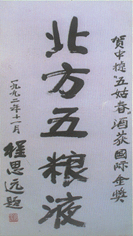 贺中粮"五姑春"酒获国际金奖
北方五粮液
一九九二年十一月
权思远题